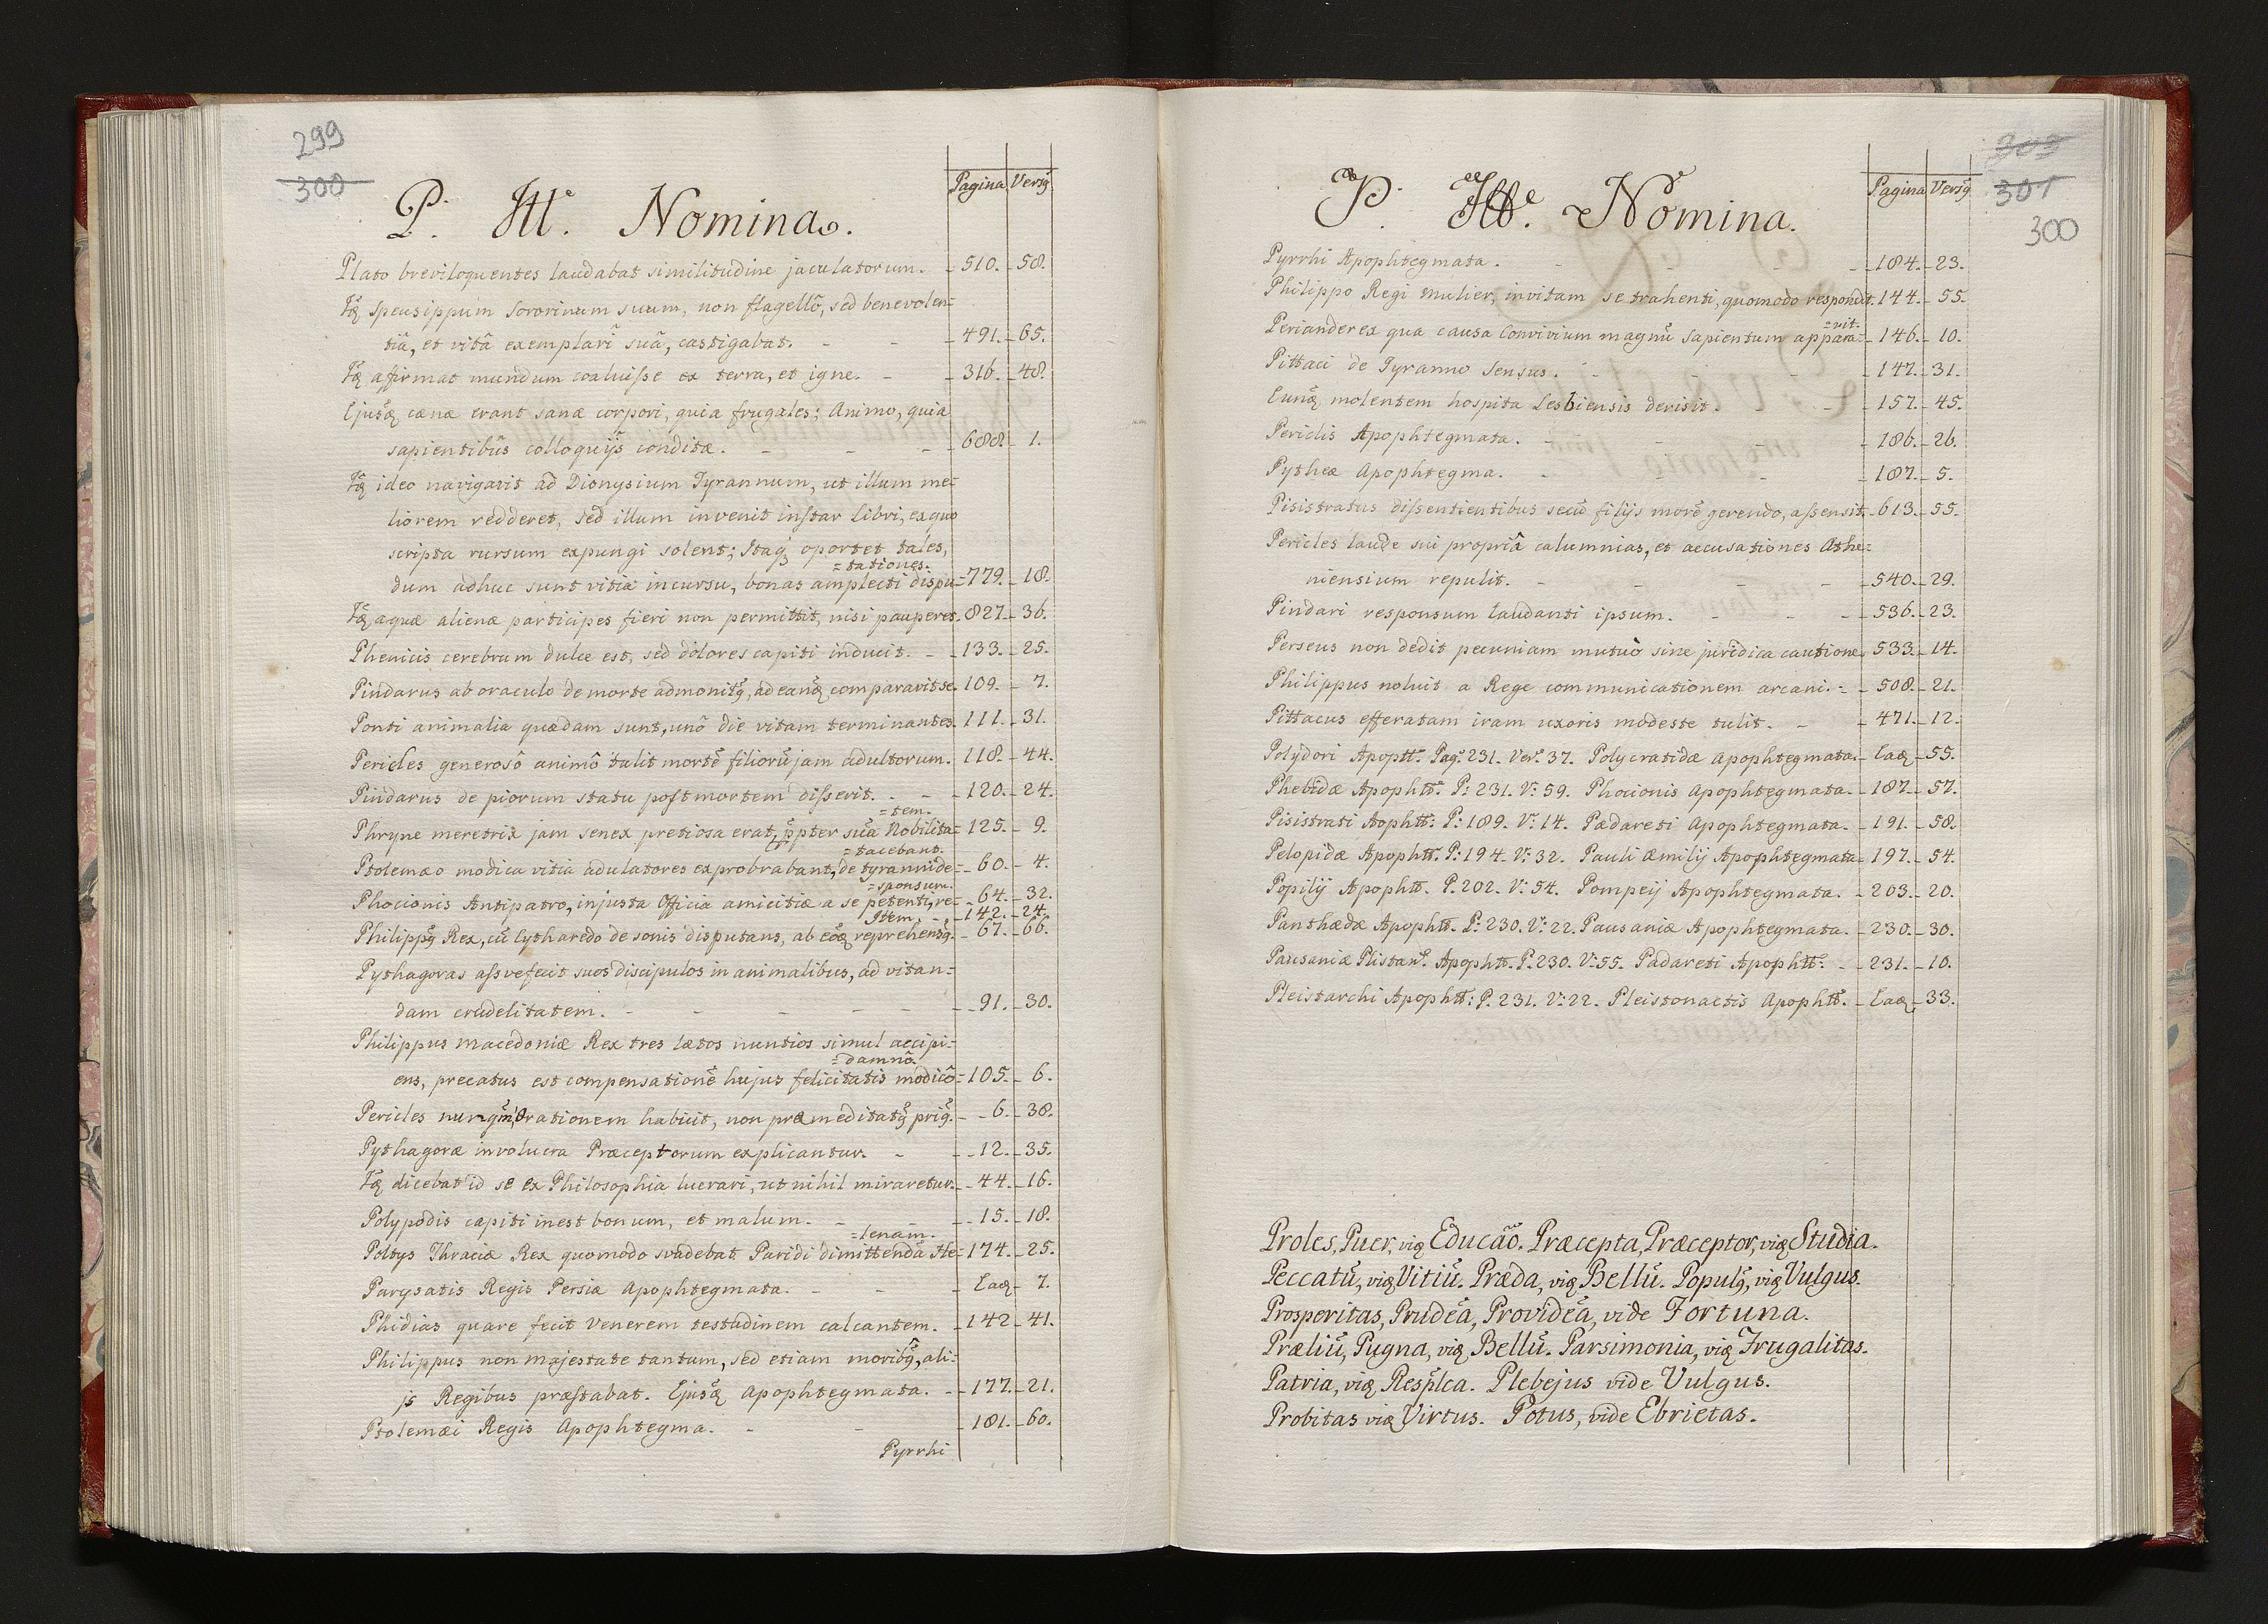 299
300
Pagina Versꝰ
P. Itt͛. Nomina.
Plato breviloquentes laudabat similitudine jaculatorum. - 510. - 58.
Idē Speusippum Sororinum suum, non flagellô, sed benevolen=
tiâ, et vitâ exemplari suâ, castigabat. - - 491. - 65.
Idē affirmat mundum coaluisse ex terra, et igne. - - 316. - 48.
Ejusdē cænæ erant sanæ corpori, quia frugales; Animo, quia
sapientibus colloquijs conditæ. - - - 688. - 1.
Idē ideo navigavit ad Dionysium Tyrannum, ut illum me=
liorem redderet, sed illum invenit instar Libri, ex quo
scripta rursum expungi solent; Itaq; oportet tales,
=tationes.
dum adhuc sunt vitia incursu, bonas amplecti dispu= 779. - 18.
Idē aquæ alienæ participes fieri non permittit, nisi pauperes. 827. - 36.
Phenicis cerebrum dulce est, sed dolores capiti inducit. - 133. - 25.
Pindarus ab oraculo de morte admonitꝰ, ad eandē comparavit se. 109. - 7.
Ponti animalia quædam sunt, unô die vitam terminantes. 111. - 31.
Pericles generosô animô tulit mortē filiorū jam adultorum. 118. - 44.
Pindarus de piorum statu post mortem disserit. - - 120. - 24.
=tem.
Phryne meretrix jam senex pretiosa erat, ꝓpter suā Nobilita= 125. - 9.
=tacebant.
Ptolemæo modica vitia adulatores exprobrabant, de tyrannide= - 60. - 4.
=sponsum.
Phocionis Antipatro, injusta Officia amicitiæ a se petenti, re= - 64. - 32.
Item. - - 142. - 24.
Philippꝰ Rex, cū Cytharedo de sonis disputans, ab eodē reprehensꝰ. - 67. - 66.
Pythagoras assvefecit suos discipulos in animalibus, ad vitan=
dam crudelitatem. - - - - - 91. - 30.
Philippus Macedoniæ Rex tres lætos nuntios simul accipi=
=damnô.
ens, precatus est compensationē hujus felicitatis modicô= 105. - 6.
Pericles nunqm̄ Orationem habuit, non præmeditatꝰ priꝰ. - - 6. - 38.
Pythagoræ involucra Præceptorum explicantur. - - 12. - 35.
Idē dicebat id se ex Philosophia lucrari, ut nihil miraretur. - 44. - 16.
Polypodis capiti inest bonum, et malum. - - - 15. - 18.
=lenam.
Poltys Thraciæ Rex quomodo svadebat Paridi dimittendā He= 174. - 25.
Parysatis Regis Persiæ Apophtegmata. - - - Eadē - 7.
Phidias quare fecit Venerem testudinem calcantem. - 142 - 41.
Philippus non majestate tantum, sed etiam moribꝰ, ali=
js Regibus præstabat. Ejusdē Apophtegmata. - - 177. - 21.
Ptolemæi Regis Apophtegma. - - - 181. - 60.
Pyrrhi
303
301
300
Pagina Versꝰ
P. Itt͛. Nomina.
Pyrrhi Apophtegmata. - - - - 184. - 23.
Philippo Regi mulier, invitam se trahenti, quomodo respondit. 144. - 55.
=vit.
Periander ex qua causa Convivium magnū Sapientum appara= - 146. - 10.
Pittaci de Tyranno Sensus. - - - - 147. - 31.
Eundē molentem hospita Lesbiensis derisit. - - - 157. - 45.
Periclis Apophtegmata. - - - - 186. - 26.
Pytheæ Apophtegma. - - - - 187. - 5.
Pisistratus dissentientibus secū filijs morē gerendo, assensit. - 613. - 55.
Pericles laude sui propriâ calumnias, et accusationes Athe=
niensium repulit. - - - - - 540. - 29.
Pindari responsum laudanti ipsum. - - - 536. - 23.
Perseus non dedit pecuniam mutuò sine juridica cautione. 533. - 14.
Philippus noluit a Rege communicationem arcani. - - 508. - 21.
Pittacus efferatam iram uxoris modeste tulit. - - 471. - 12.
Polydori Apoptt͛. Pag͛. 231. Ver͛. 37. Polycratidæ Apophtegmata. - Eadē - 55.
Phebidæ Apophtt͛. P: 231. V: 59. Phocionis Apophtegmata. - 187. - 57.
Pisistrati Aophtt͛: P: 189. V: 14. Pædareti Apophtegmata. - 191. - 58.
Pelopidæ Apophtt͛. P: 194. V: 32. Pauli Æmilij Apophtegmata - 197. - 54.
Popilij Apophtt͛. P. 202. V: 54. Pompeij Apophtegmata. - 203. - 20.
Panthædæ Apophtt͛. P: 230. V: 22. Pausaniæ Apophtegmata. - 230. - 30.
Pausaniæ Plistan͛. Apophtt͛. P. 230. V: 55. Padareti Apophtt͛. - - 231. - 10.
Pleistarchi Apophtt͛: P. 231. V: 22. Pleistonactis Apophtt͛. - Eadē - 33.
Proles, Puer, vidē Educāō. Præcepta, Præceptor, vidē Studia.
Peccatū, vidē Vitiū. Præda, vidē Bellū. Populꝰ, vidē Vulgus.
Prosperitas, Prudēa, Providēa, vide Fortuna.
Præliū, Pugna, vidē Bellū. Parsimonia, vidē Frugalitas.
Patria, vidē Resplca. Plebejus vide Vulgus.
Probitas vidē Virtus. Potus, vide Ebrietas.